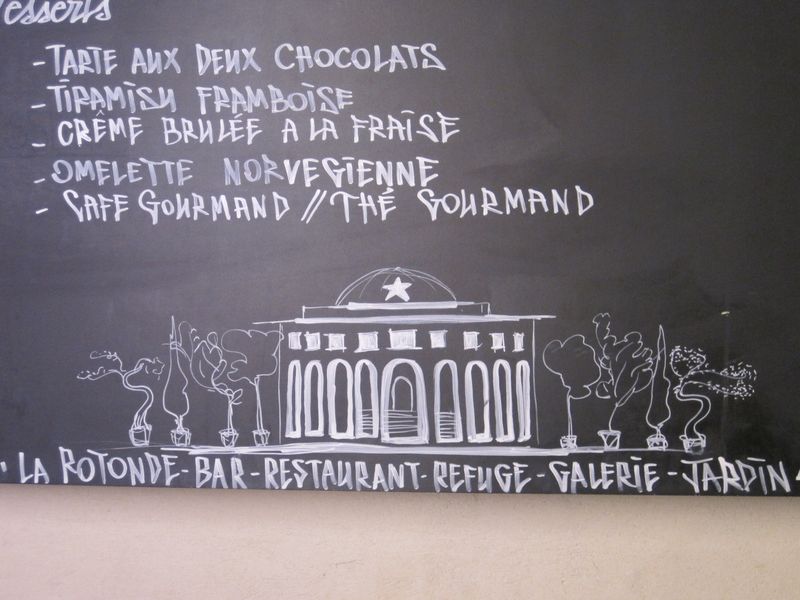 Desserts
- TARTE AUX DEUX CHOCOLATS
- TIRAMISU FRAMBOISE
- CRÊME BRULÉE A LA FRAISE
- OMELETTE NORVEGIENNE
- CAFE GOURMAND // THÉ GOURMAND
LA ROTONDE - BAR - RESTAURANT - REFUGE - GALERIE - JARDIN